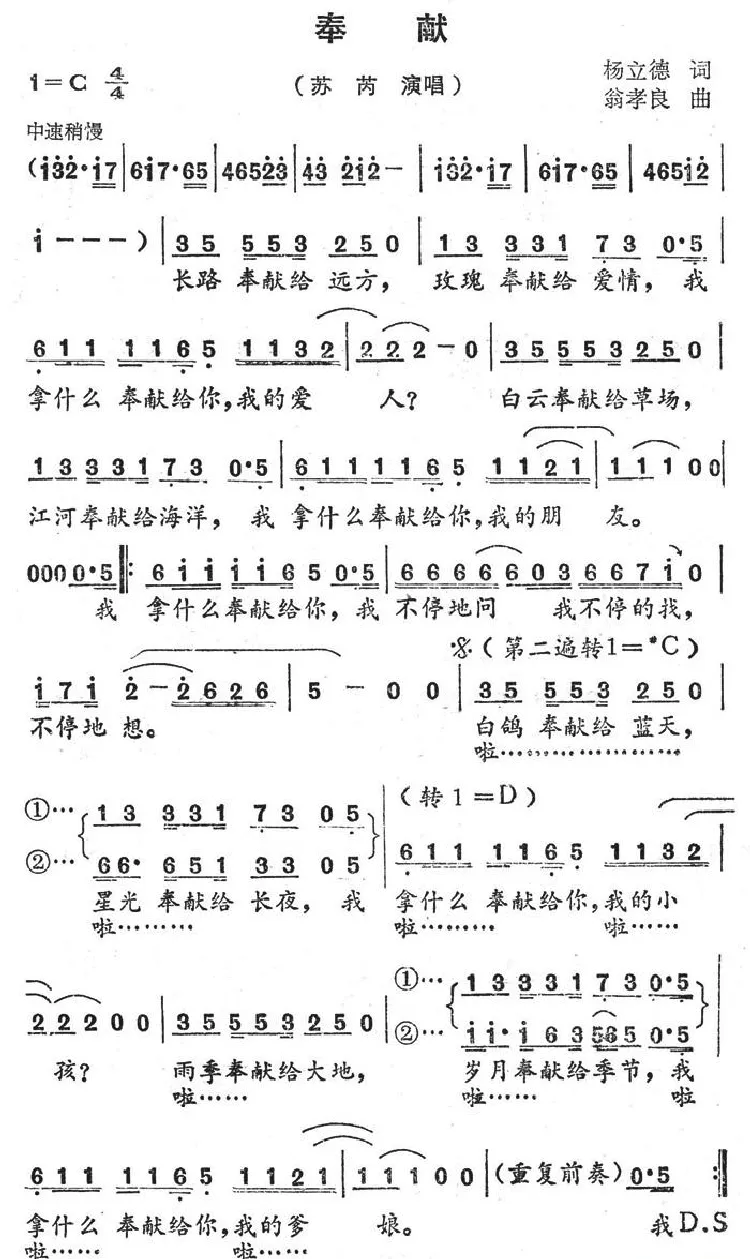 奉 献
1=C 4/4
（苏 芮 演唱）
杨立德 词
翁孝良 曲
中速稍慢
(i̇3̇2̇·i̇7|6i̇7·65|4652̇3̇|4̇3̇ 2̇i̇2̇－|i̇3̇2̇·i̇7|6i̇7·65|465i̇2̇|
i̇－－－)|35 553 250|13 331 7̣3 0·5̣|
长路 奉献给 远方，玫瑰 奉献给 爱情，我
6̣11 116̣5̣ 1132|222－0|35 553 250|
拿什么 奉献给你，我的爱 人？ 白云奉献给草场，
13 331 7̣3 0·5̣|6̣11 116̣5̣ 1121|11100|
江河奉献给海洋，我 拿什么奉献给你，我的朋 友。
0000·5‖:6i̇i̇ i̇i̇65 0·5|6666603667i̇0|
我 拿什么奉献给你，我 不停地问 我不停的找，
𝄋（第二遍转1=#C）
i̇7i̇ 2̇－2̇626|5－00|35 553 250|
不停地 想。 白鸽 奉献给 蓝天，
啦………………
①… 13 331 7̣3 05̣
（转1=D）
②… 66· 651 33 05|6̣11 116̣5̣ 1132|
星光 奉献给 长夜，我 拿什么 奉献给你，我的小
啦……… 啦……… 啦……
①… 13 331 7̣3 0·5̣
22200|35 553 250|②… i̇i̇·i̇63 565 0·5|
孩？ 雨季奉献给大地， 岁月奉献给季节，我
啦…… 啦…… 啦
6̣11 116̣5̣ 1121|11100|(重复前奏) 0·5:‖
拿什么 奉献给你，我的爹 娘。 我 D.S
啦…… 啦……